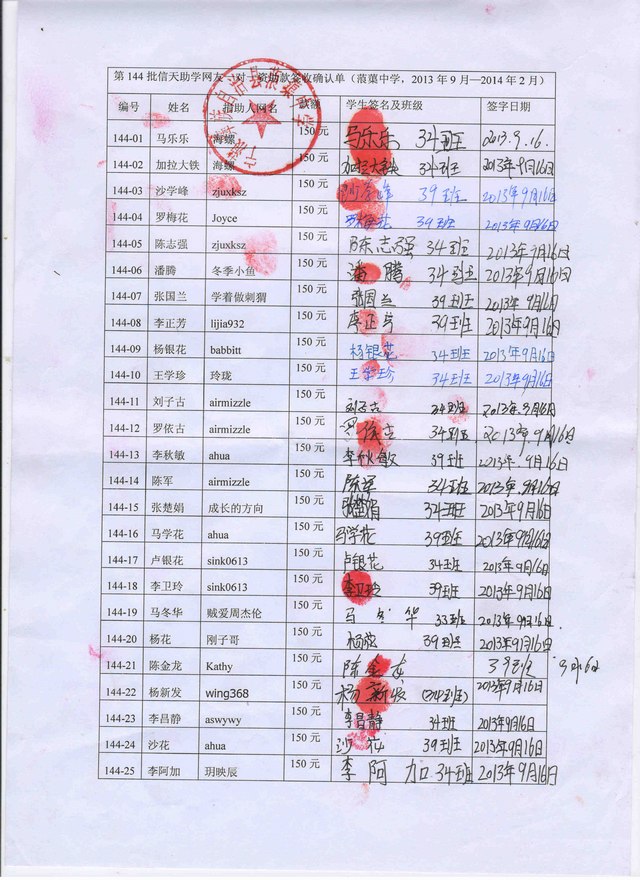 第 144 批信天助学网友一对一资助款签收确认单（蒗蕖中学，2013 年 9 月—2014 年 2 月）
编号 姓名 捐助人网名 款额 学生签名及班级 签字日期
144-01 马乐乐 海螺 150 元 马乐乐 34班 2013.9.16.
144-02 加拉大铁 海螺 150 元 加拉大铁 34班 2013年9月16日
144-03 沙学峰 zjuxksz 150 元 沙学峰 39班 2013年9月16日
144-04 罗梅花 Joyce 150 元 罗梅花 39班 2013年9月16日
144-05 陈志强 zjuxksz 150 元 陈志强 34班 2013年9月16日
144-06 潘腾 冬季小鱼 150 元 潘腾 34班 2013年9月16日
144-07 张国兰 学着做刺猬 150 元 张国兰 39班 2013年9月16日
144-08 李正芳 lijia932 150 元 李正芳 39班 2013年9月16日
144-09 杨银花 babbitt 150 元 杨银花 34班 2013年9月16日
144-10 王学珍 玲珑 150 元 王学珍 34班 2013年9月16日
144-11 刘子古 airmizzle 150 元 刘子古 34班 2013年.9月16日
144-12 罗依古 airmizzle 150 元 罗依古 34班 2013年9月16日
144-13 李秋敏 ahua 150 元 李秋敏 39班 2013年.9月16日
144-14 陈军 airmizzle 150 元 陈军 34班 2013年.9月16日
144-15 张楚娟 成长的方向 150 元 张楚娟 34班 2013年9月16日
144-16 马学花 ahua 150 元 马学花 39班 2013年9月16日
144-17 卢银花 sink0613 150 元 卢银花 34班 2013年9月16日
144-18 李卫玲 sink0613 150 元 李卫玲 39班 2013年9月16日
144-19 马冬华 贼爱周杰伦 150 元 马冬华 33班 2013年9月16日
144-20 杨花 刚子哥 150 元 杨花 39班 2013年9月16日
144-21 陈金龙 Kathy 150 元 陈金龙 39班 9月16日
144-22 杨新发 wing368 150 元 杨新发 (34班) 2013年9月16日
144-23 李昌静 aswywy 150 元 李昌静 34班 2013年9月16日
144-24 沙花 ahua 150 元 沙花 39班 2013年9月16日
144-25 李阿加 玥映辰 150 元 李阿加 34班 2013年9月16日